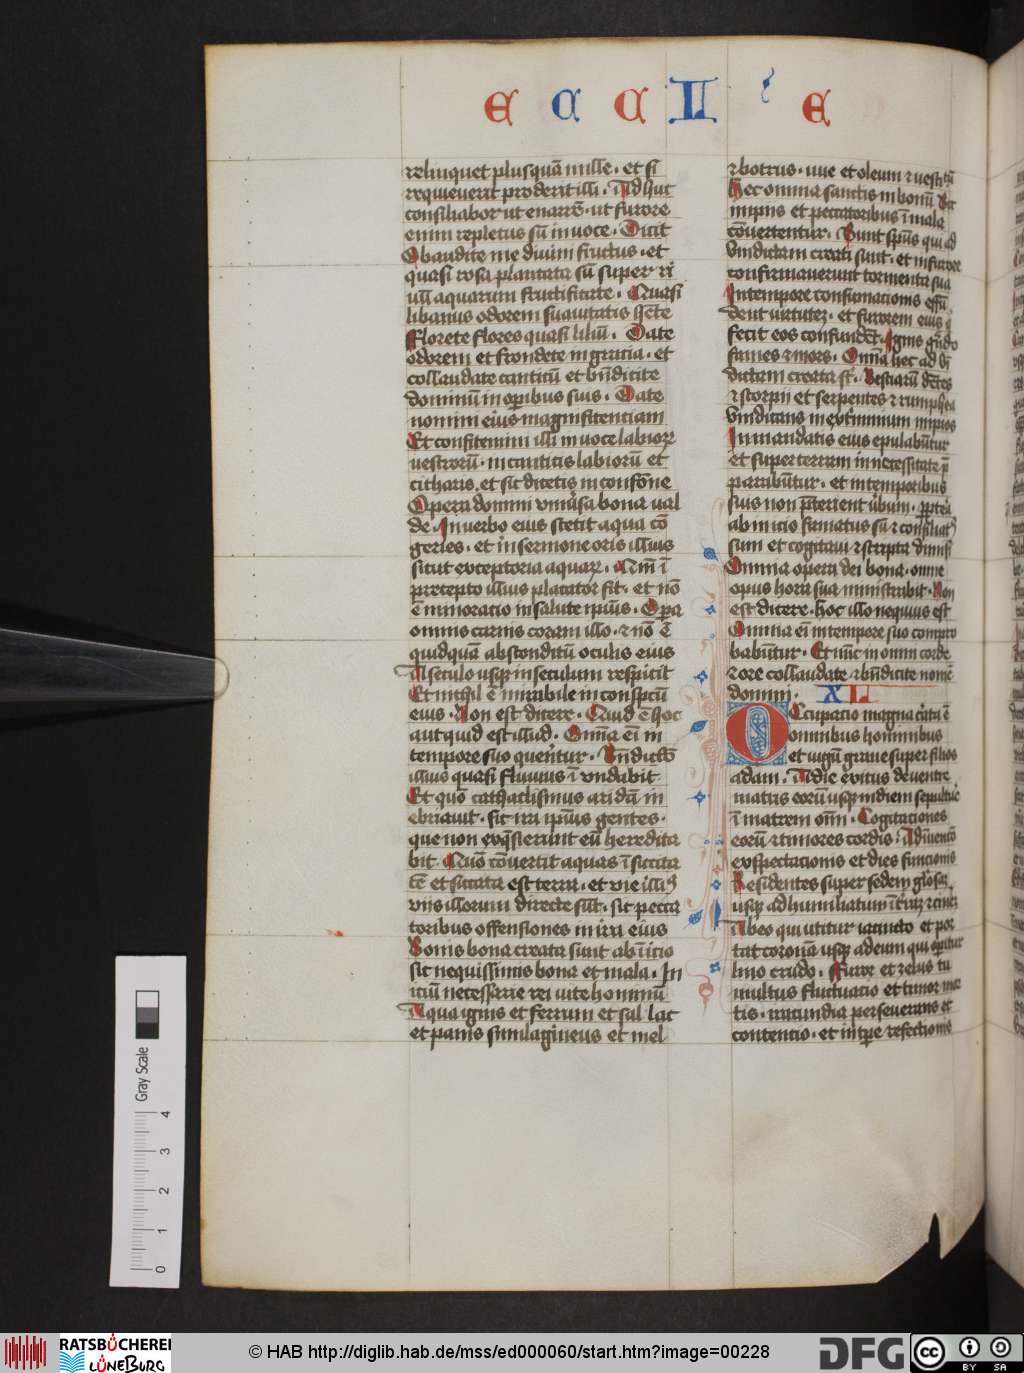 E C C LI ' E
relinquet plusquā mille · et si
requieuerit proderit illi · Adhuc
consiliabor ut enarrē · ut furore
enim repletus sū in uoce · Dicit
Obaudite me diuini fructus · et
quasi rosa plantata sū super ri
uū aquarum fructificate · Quasi
libanus odorem suauitatis hēte
Florete flores quasi liliū · Date
odorem et frondete in gracia · et
collaudate canticū et bn̄dicite
dominū in oꝑibus suis · Date
nomini eius magnificenciam
Et confitemini illi in uoce labioꝝ
uestrorū · in canticis labiorū et
citharis · et sic dicetis in confōne
Opera domini vniūsa bona ual
de · In uerbo eius stetit aqua cō
geries · et in sermone oris illius
sicut exceptoria aquaꝝ · Qm̄ ī
precepto illius placator fit · et nō
ē minoracio in salute ipius · Oꝑa
omnis carnis coram illo · ⁊ nō ē
quidquā absconditū oculis eius
A seculo usqꝫ in seculum respicit
Et nichil ē mirabile in cōspectū
eius · Non est dicere · Quid ē hoc
aut quid est illud · Omīa eī in
tempore suo querūtur · Bn̄dictō
illius quasi fluuius īvndabit
Et quō cathaclismus aridā in
ebriauit · sic ira ipius gentes ·
que non exq̄sierunt eū heredita
bit · Quō cōuertit aquas ī siccita
tē et siccata est terra · et vie illiꝰ
viis illorum directe sūt · sic pecca
toribus offensiones in ira eius
Bonis bona creata sunt ab īicio
sic nequissimis bona et mala · In
iciū necessarie rei uite hominū
Aqua ignis et ferrum et sal lac
et panis similagineus et mel
⁊ botrus · uue et oleum ⁊ uestitū
Hec omnia sanctis in bonū sic
impiis et peccatoribus ī mala
cōuertentur · Sunt spūs qui ad
vindictam creati sunt · et in furore
confirmauerunt tormenta sua
In tempore consumacionis effū
dent uirtutez · et furorem eius q̄
fecit eos confundēt · Ignis grādo
fames ⁊ mors · Omīa hec ad vī
dictam creata st̄ · Bestiarū dētes
⁊ scorpii et serpentes ⁊ rumphea
vindicans in exterminium impios
In mandatis eius epulabūtur
et super terram in necessitate p̄
parabūtur · et in temporibus
suis non p̄terient ūbum · ꝓpterea
ab inicio firmatus sū ⁊ consiliatꝰ
sum et cogitaui ⁊ scripta dimisi
Omnia opera dei bona · omne
opus hora sua ministrabit · Non
est dicere · hoc illo nequius est
Omnia eī in tempore suo compro
babūtur · Et nūc in omni corde
⁊ ore collaudate ⁊ bn̄dicite nomē
domini · XL
OCcupacio magna c̄ata ē
omnibus hominibus
et iugū graue super filios
adam · A die exitus de uentre
matris eorū usqꝫ in diem sepulturē
ī matrem oīm · Cogitaciones
eorū ⁊ timores cordis · Adīuencō
exspectacionis et dies finicionis
Residentes super sedem gl̄osaꝫ
usqꝫ ad humiliatum ī terra ⁊ cinere
Ab eo qui utitur iacincto et por
tat coronā usqꝫ ad eum qui oꝑitur
lino crudo · Furor et zelus tu
multus fluctuacio et timor mor
tis · iracundia perseuerans et
contencio · et in tꝑe refectionis
Gray Scale
0 1 2 3 4
RATSBÜCHEREI
LÜNEBURG
© HAB http://diglib.hab.de/mss/ed000060/start.htm?image=00228
DFG
cc BY SA